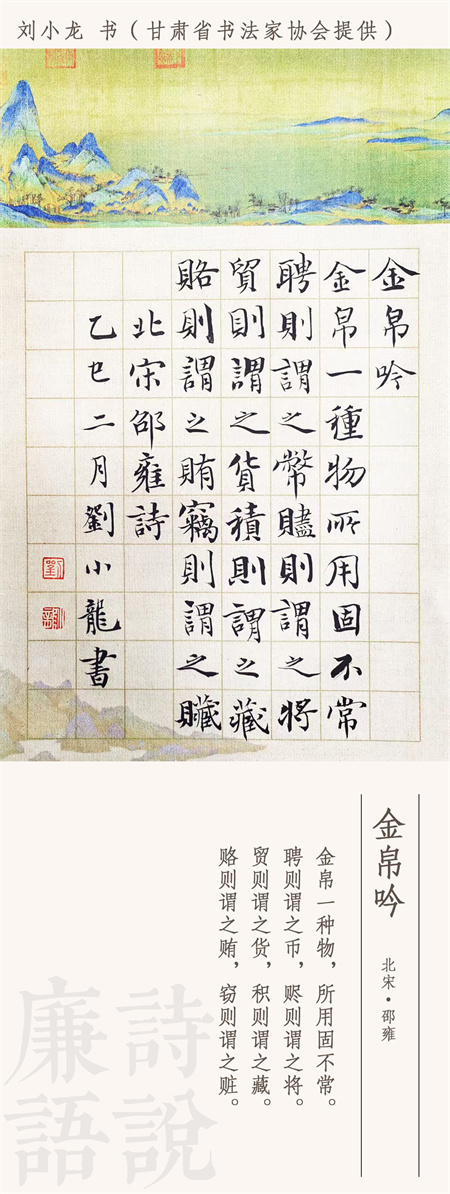 刘小龙 书（甘肃省书法家协会提供）
金帛吟
金帛一種物所用固不常
聘則謂之幣贐則謂之將
貿則謂之貨積則謂之藏
賂則謂之賄竊則謂之贓
北宋邵雍詩
乙巳二月劉小龍書
金帛吟
北宋·邵雍
金帛一种物，所用固不常。
聘则谓之币，赆则谓之将。
贸则谓之货，积则谓之藏。
赂则谓之贿，窃则谓之赃。
詩說
廉語